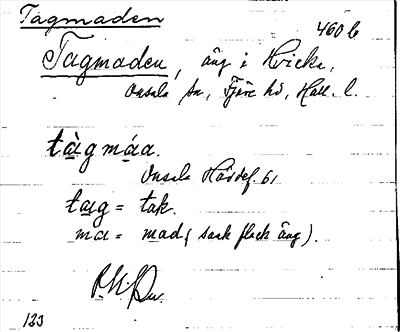 Tagmaden
460 b
Tagmaden, äng i Hvicke,
Onsala sn, Fjäre hd, Hall. l.
tàg máa.
Onsala Härdef. 61
tag = tak.
ma = mad, (sank fläck äng).
123